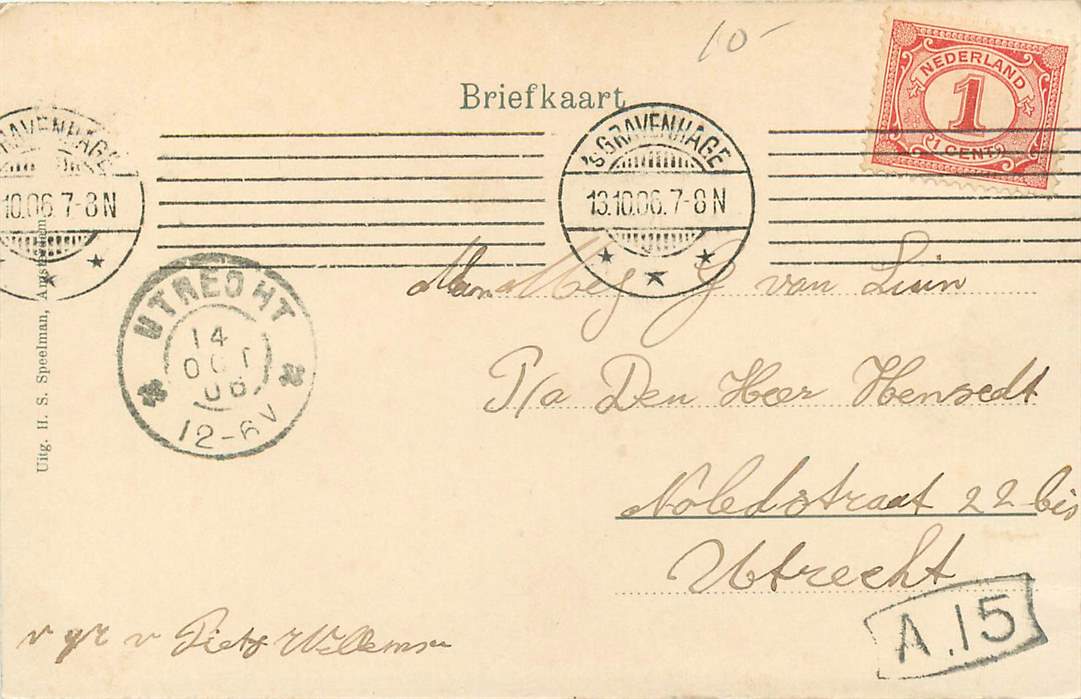 10-
Briefkaart
NEDERLAND
1
(1 CENT)
'S GRAVENHAGE
10.06.7-8N
'S GRAVENHAGE
13.10.06.7-8N
UTRECHT
14
OCT
06
12-6V
Uitg. H. S. Speelman, Amsterdam
Mej G van Luin
P/a Den Heer Hensedt
straat 22 bis
Utrecht
A.15
v gr v Piets Willemse